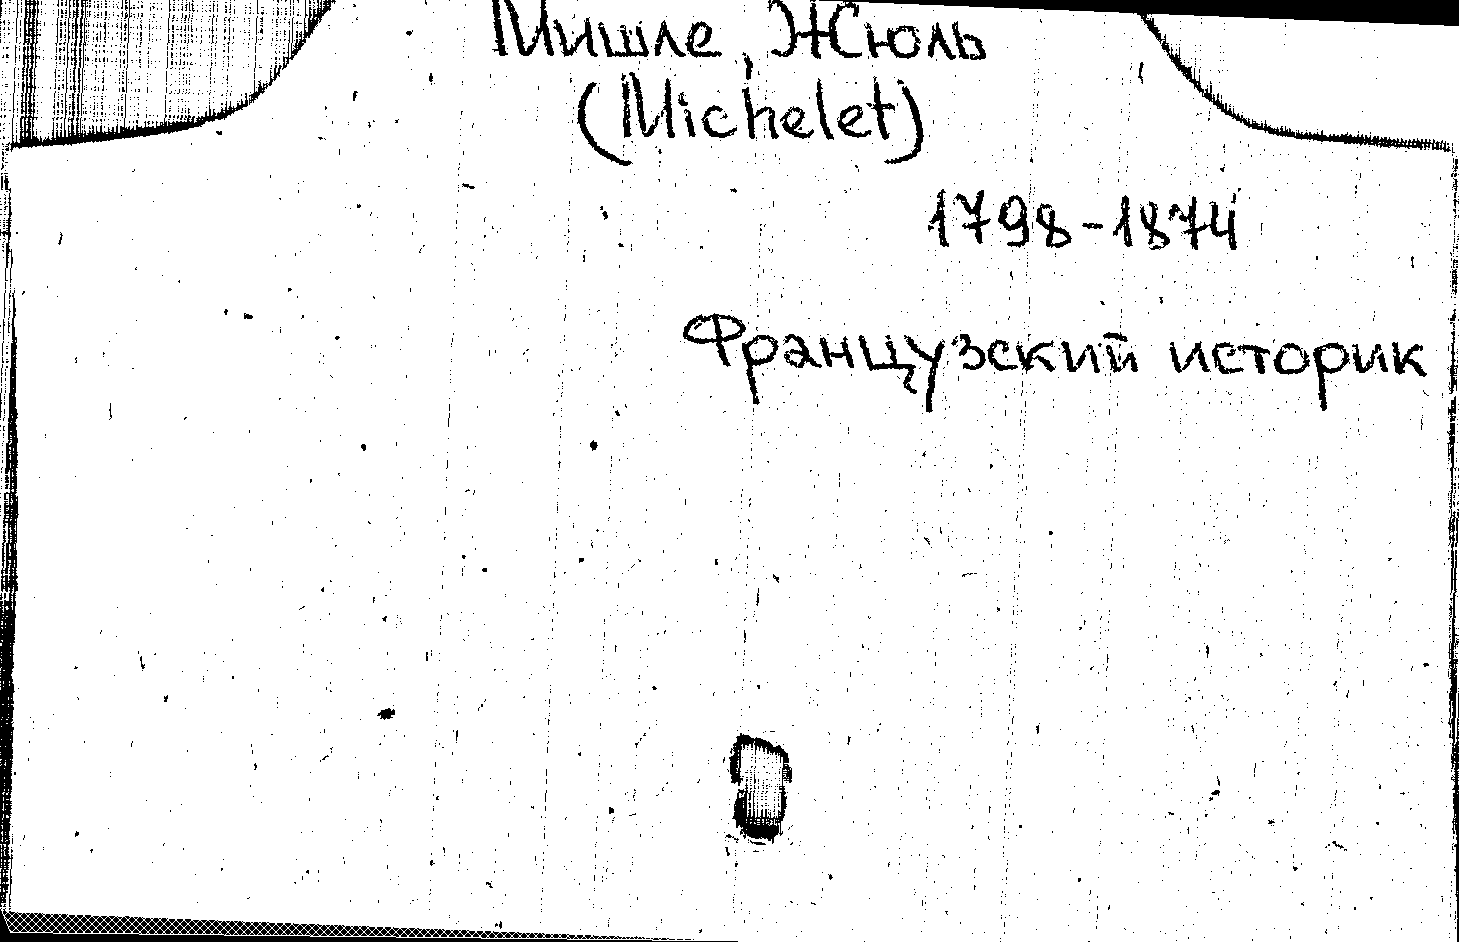 Мишле, Жюль
(Michelet)
1798-1874
Французский историк